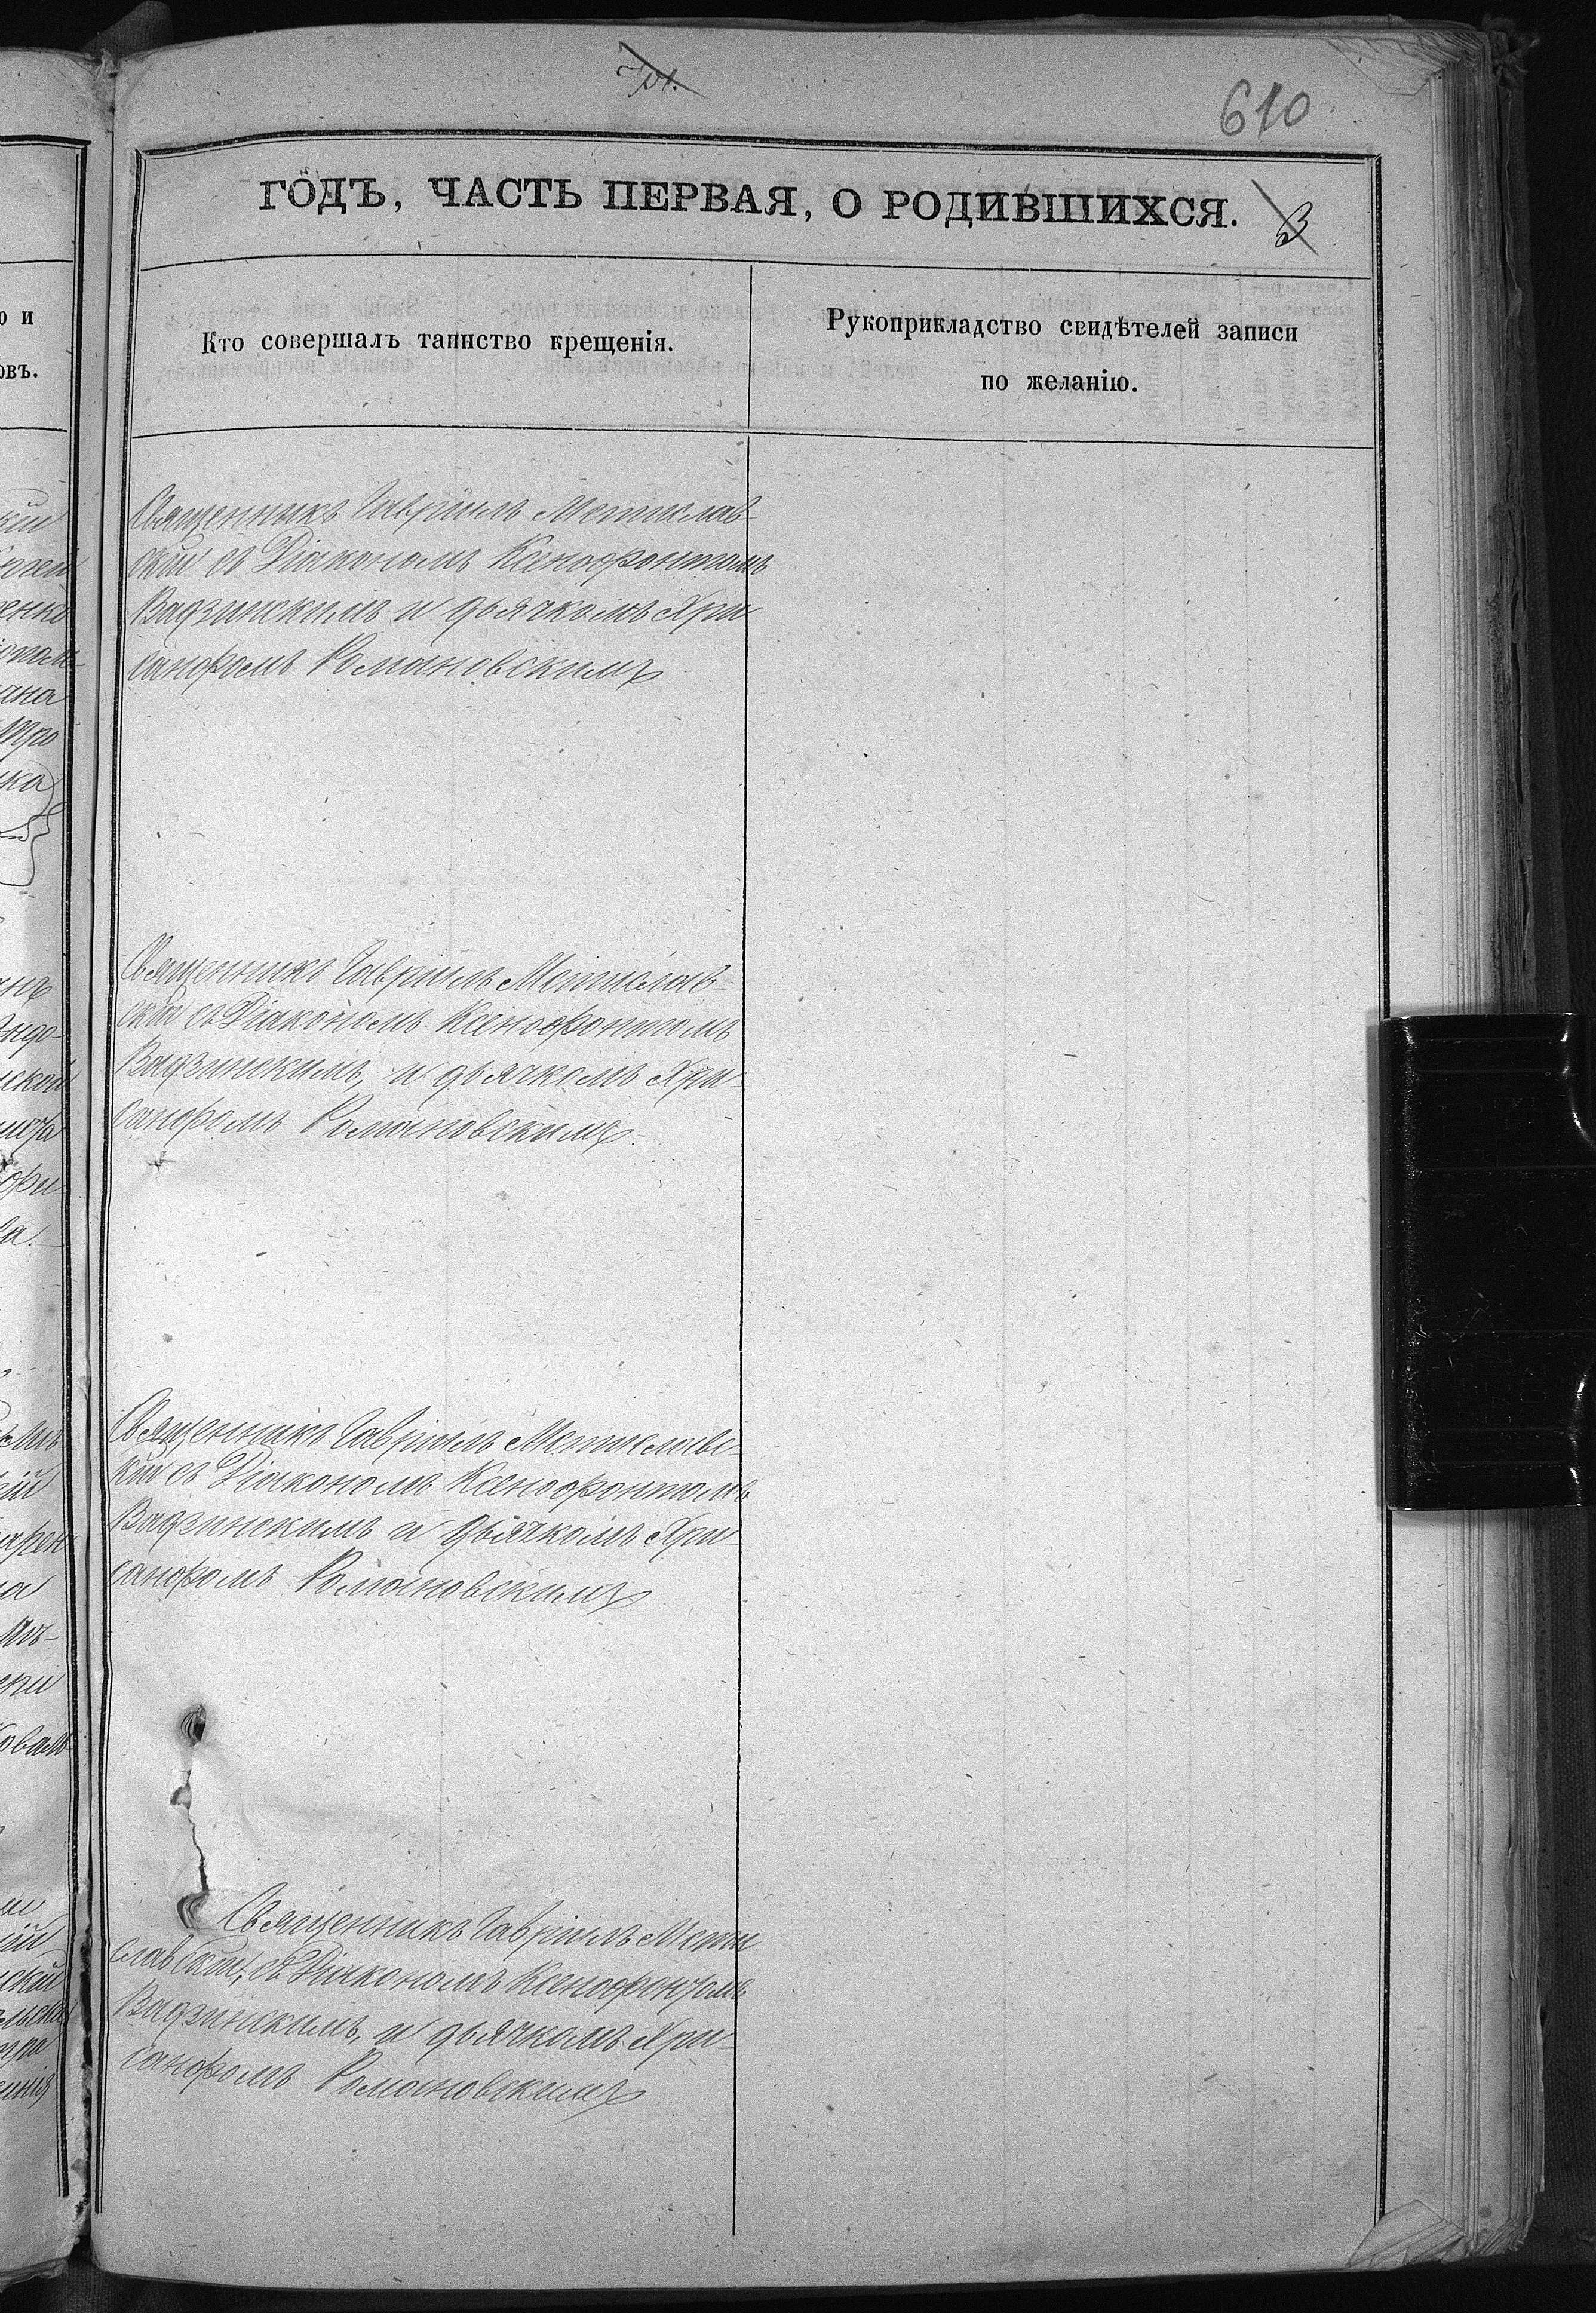 610
ГОДЪ, ЧАСТЬ ПЕРВАЯ, О РОДИВШИХСЯ. 3
Кто совершалъ таинство крещенія.
Рукоприкладство свидѣтелей записи
по желанію.
Священникъ Гавріилъ Мстислав-
скій съ Діакономъ Ксенофонтомъ
Вадзинскимъ и дьячкомъ Хри
санфомъ Романовскимъ
Священникъ Гавріилъ Мстислав-
скій съ Діакономъ Ксенофонтомъ
Вадзинскимъ, и дьячкомъ Хри-
санфомъ Романовскимъ.
Священникъ Гавріилъ Мстиславс-
кій съ Діакономъ Ксенофонтомъ
Вадзинскимъ и дьячкомъ Хри-
санфомъ Романовскимъ
Священникъ Гавріилъ Мсти
славскій, съ Діакономъ Ксенофонтомъ
Вадзинскимъ, и дьячкомъ Хри-
санфомъ Романовскимъ